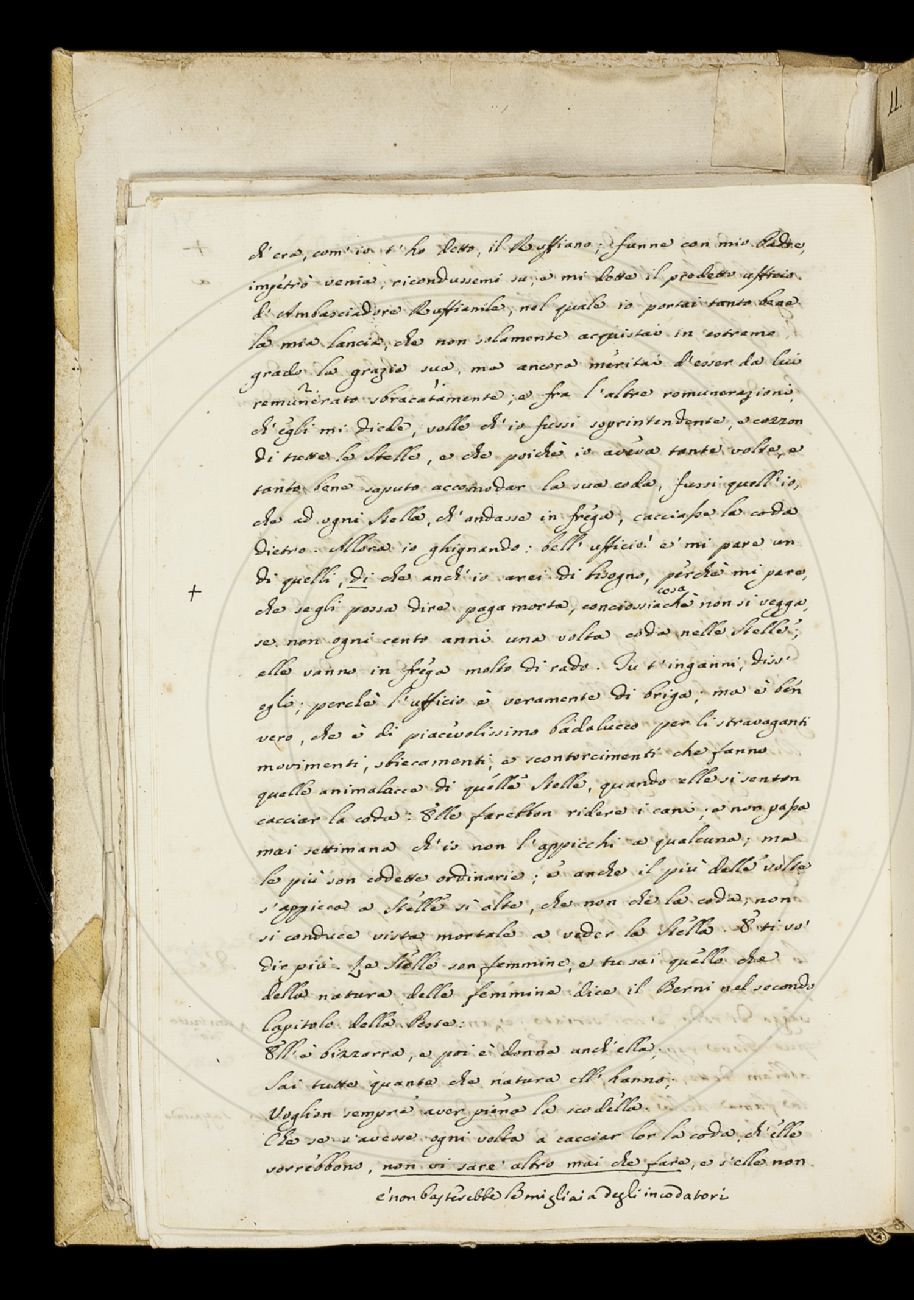 11.
ch'era, com'io t'ho detto, il Ruffiano; funne con mio padre,
impetrò venia, ricondussemi su, e mi dette il predetto ufficio
d'Ambasciadore Ruffianile, nel quale io portai tanto bene
la mia lancia, che non solamente acquistai in estremo
grado la grazia sua, ma ancora meritai d'esser da lui
remunerato sbracatamente; e fra l'altre remunerazioni,
ch'egli mi diede, volle ch'io fussi soprintendente, e cozzon
di tutte le Stelle, e che poichè io aveva tante volte, e
tanto bene saputo accomodar la sua coda, fussi quell'io,
che ad ogni stella, ch'andasse in frega, cacciasse la coda
dietro. Allora io ghignando: bell'ufficio! e' mi pare un
di quelli, di che anch'io arei di bisogno, perchè mi pare,
+
che se gli possa dire paga morta, conciossiachè non si vegga,
cosa
se non ogni cento anni una volta coda nelle stelle;
elle vanno in frega molto di rado. Tu t'inganni, diss'
egli; perchè l'ufficio è veramente di briga; ma è ben
vero, che è di piacevolissimo badalucco per li stravaganti
movimenti, sbiecamenti, e scontorcimenti che fanno
quelle animalacce di quelle stelle, quando elle si senton
cacciar la coda: Elle farebbon ridere i cani; e non passa
mai settimana ch'io non l'appicchi a qualcuna; ma
le più son codette ordinarie; e anche il più delle volte
s'appicca a stelle sì alte, che non che la coda, non
si conduce vista mortale a veder la stella. E ti vo'
dir più. Le stelle son femmine, e tu sai quello che
della natura delle femmine dice il Berni nel secondo
Capitolo della Peste:
Ell'è bizzarra, e poi è donna anch'ella,
Sai tutte quante che natura ell'hanno;
Voglion sempre aver piena la scodella.
Che se s'avesse ogni volta a cacciar lor la coda, ch'elle
vorrebbono, non vi sare' altro mai che fare, e s'elle non
e' non basterebbe le migliaia degli incodatori